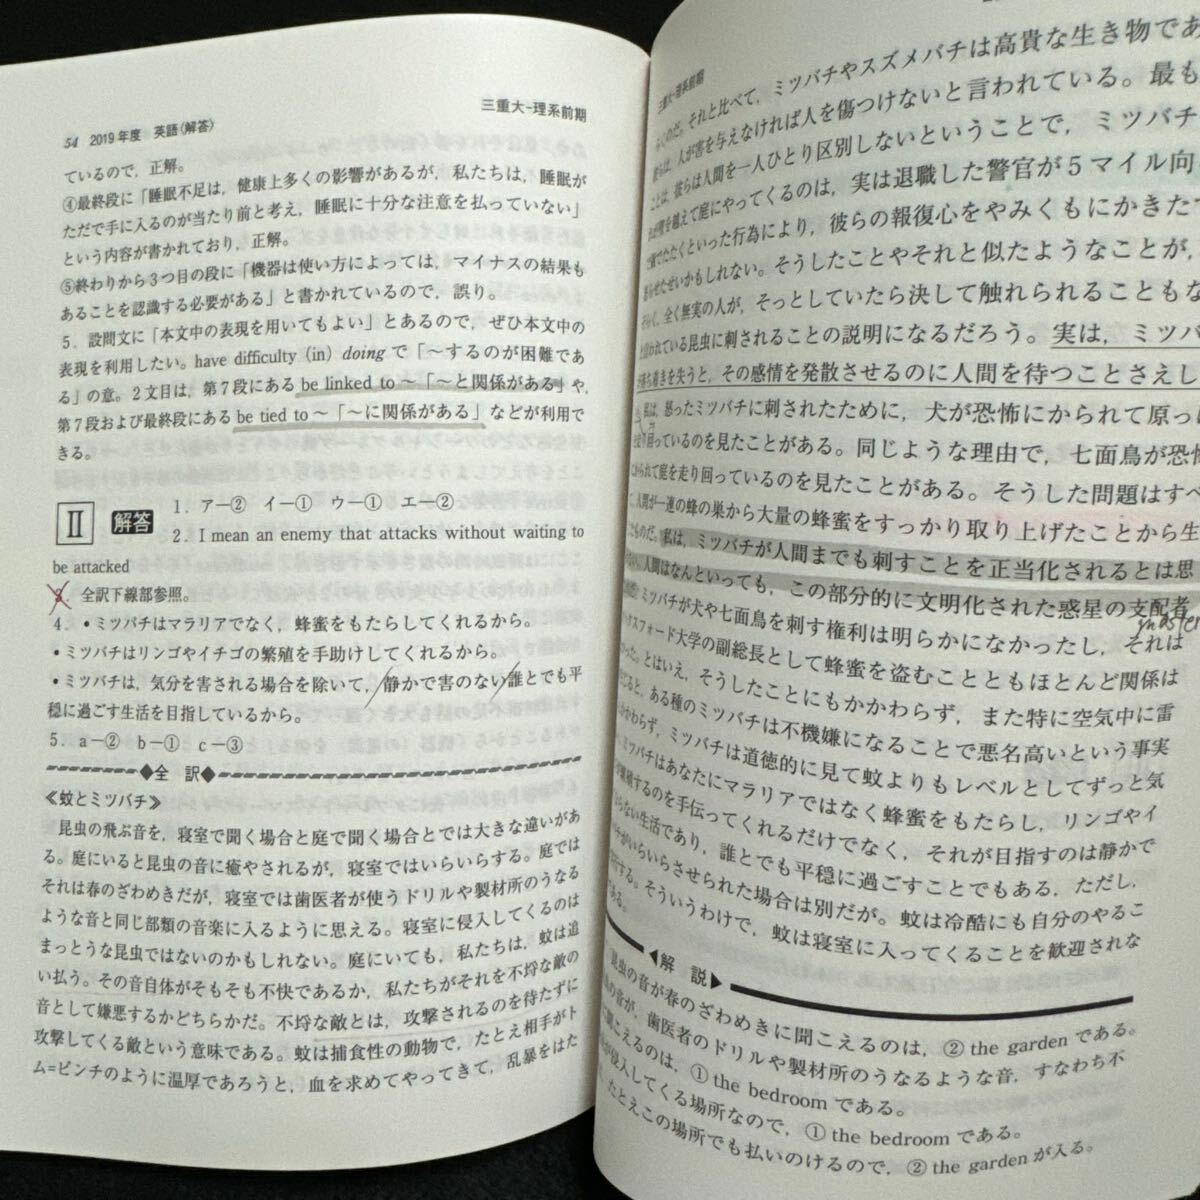 54 2019年度 英語〈解答〉
三重大-理系前期
ているので，正解。
④最終段に「睡眠不足は，健康上多くの影響があるが，私たちは，睡眠が
ただで手に入るのが当たり前と考え，睡眠に十分な注意を払っていない」
という内容が書かれており，正解。
⑤終わりから3つ目の段に「機器は使い方によっては，マイナスの結果も
あることを認識する必要がある」と書かれているので，誤り。
5．設問文に「本文中の表現を用いてもよい」とあるので，ぜひ本文中の
表現を利用したい。have difficulty (in) doing で「～するのが困難であ
る」の意。2文目は，第7段にある be linked to ～「～と関係がある」や，
第7段および最終段にある be tied to ～「～に関係がある」などが利用で
きる。
Ⅱ 解答 1．ア－② イ－① ウ－① エ－②
2．I mean an enemy that attacks without waiting to
be attacked
3．全訳下線部参照。
4．・ミツバチはマラリアでなく，蜂蜜をもたらしてくれるから。
・ミツバチはリンゴやイチゴの繁殖を手助けしてくれるから。
・ミツバチは，気分を害される場合を除いて，静かで害のない誰とでも平
穏に過ごす生活を目指しているから。
5．a－② b－① c－③
◆全 訳◆
≪蚊とミツバチ≫
昆虫の飛ぶ音を，寝室で聞く場合と庭で聞く場合とでは大きな違いがあ
る。庭にいると昆虫の音に癒やされるが，寝室ではいらいらする。庭では
それは春のざわめきだが，寝室では歯医者が使うドリルや製材所のうなる
ような音と同じ部類の音楽に入るように思える。寝室に侵入してくるのは
まっとうな昆虫ではないのかもしれない。庭にいても，私たちは，蚊は追
い払う。その音自体がそもそも不快であるか，私たちがそれを不埒な敵の
音として嫌悪するかどちらかだ。不埒な敵とは，攻撃されるのを待たずに
攻撃してくる敵という意味である。蚊は捕食性の動物で，たとえ相手がト
ム=ピンチのように温厚であろうと，血を求めてやってきて，乱暴をはた
三重大-理系前期
らくのだ。それと比べて，ミツバチやスズメバチは高貴な生き物であ
人が害を与えなければ人を傷つけないと言われている。最も
ことは，彼らは人間を一人ひとり区別しないということで，ミツバチ
を越えて庭にやってくるのは，実は退職した警官が5マイル向
でたたくといった行為により，彼らの報復心をやみくもにかきたて
らせたせいかもしれない。そうしたことやそれと似たようなことが，
らく，全く無実の人が，そっとしていたら決して触れられることもな
われている昆虫に刺されることの説明になるだろう。実は，ミツ
落ち着きを失うと，その感情を発散させるのに人間を待つことさえし
私は，怒ったミツバチに刺されたために，犬が恐怖にかられて原っぱ
回っているのを見たことがある。同じような理由で，七面鳥が恐怖
かられて庭を走り回っているのを見たことがある。そうした問題はすべ
て，人間が一連の蜂の巣から大量の蜂蜜をすっかり取り上げたことから生
ものだ。私は，ミツバチが人間までも刺すことを正当化されるとは思
ない。人間はなんといっても，この部分的に文明化された惑星の支配者
master
ミツバチが犬や七面鳥を刺す権利は明らかになかったし，それは
オックスフォード大学の副総長として蜂蜜を盗むことともほとんど関係は
った。とはいえ，そうしたことにもかかわらず，また特に空気中に雷
じると，ある種のミツバチは不機嫌になることで悪名高いという事実
かかわらず，ミツバチは道徳的に見て蚊よりもレベルとしてずっと気
ミツバチはあなたにマラリアではなく蜂蜜をもたらし，リンゴやイ
するのを手伝ってくれるだけでなく，それが目指すのは静かで
ない生活であり，誰とでも平穏に過ごすことでもある，ただし，
チがいらいらさせられた場合は別だが。蚊は冷酷にも自分のやるこ
する。そういうわけで，蚊は寝室に入ってくることを歓迎されな
ある。
◀解 説▶
昆虫の音が春のざわめきに聞こえるのは，② the garden である。
の音が，歯医者のドリルや製材所のうなるような音，すなわち不
聞こえるのは，① the bedroom である。
が侵入してくる場所なので，① the bedroom である。
たとえこの場所でも払いのけるので，② the garden が入る。